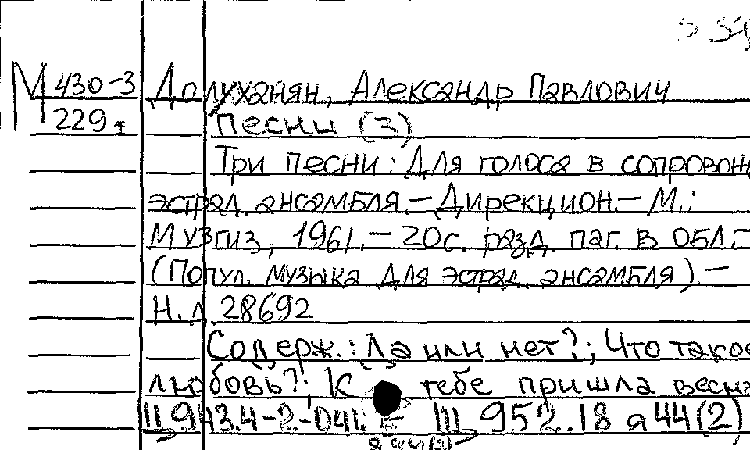 М 430-3 Долуханян, Александр Павлович
229 Песни (3)
Три песни: Для голоса в сопровож
эстрад. ансамбля.-Дирекцион.- М.:
Музгиз, 1961.- 20с. разд. паг. в обл.-
(Попул. музыка для эстрад. ансамбля).-
Н.д. 28692
Содерж.: Да или нет?; Что такое
любовь?; К тебе пришла весна
Ш 943.4-2-041 = Ш 952.18 я44(2)